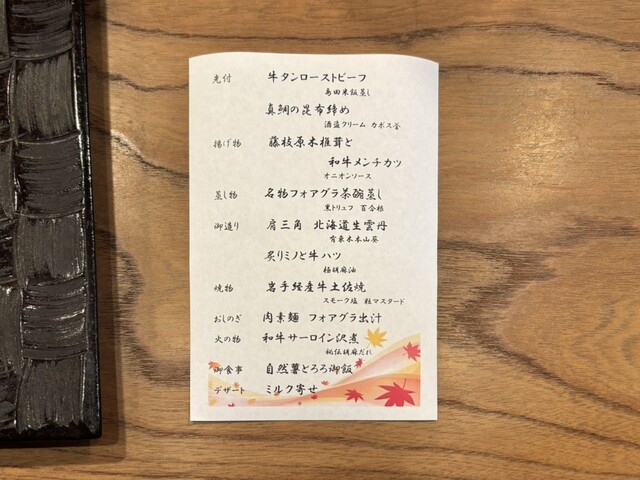 先付 牛タンローストビーフ
島田米飯蒸し
真鯛の昆布締め
酒盗クリーム カボス釜
揚げ物 藤枝原木椎茸と
和牛メンチカツ
オニオンソース
蒸し物 名物フォアグラ茶碗蒸し
黒トリュフ 百合根
御造り 肩三角 北海道生雲丹
有東木本山葵
炙りミノと牛ハツ
極胡麻油
焼物 岩手経産牛土佐焼
スモーク塩 粒マスタード
おしのぎ 肉素麺 フォアグラ出汁
火の物 和牛サーロイン沢煮
秘伝胡麻だれ
御食事 自然薯とろろ御飯
デザート ミルク寄せ